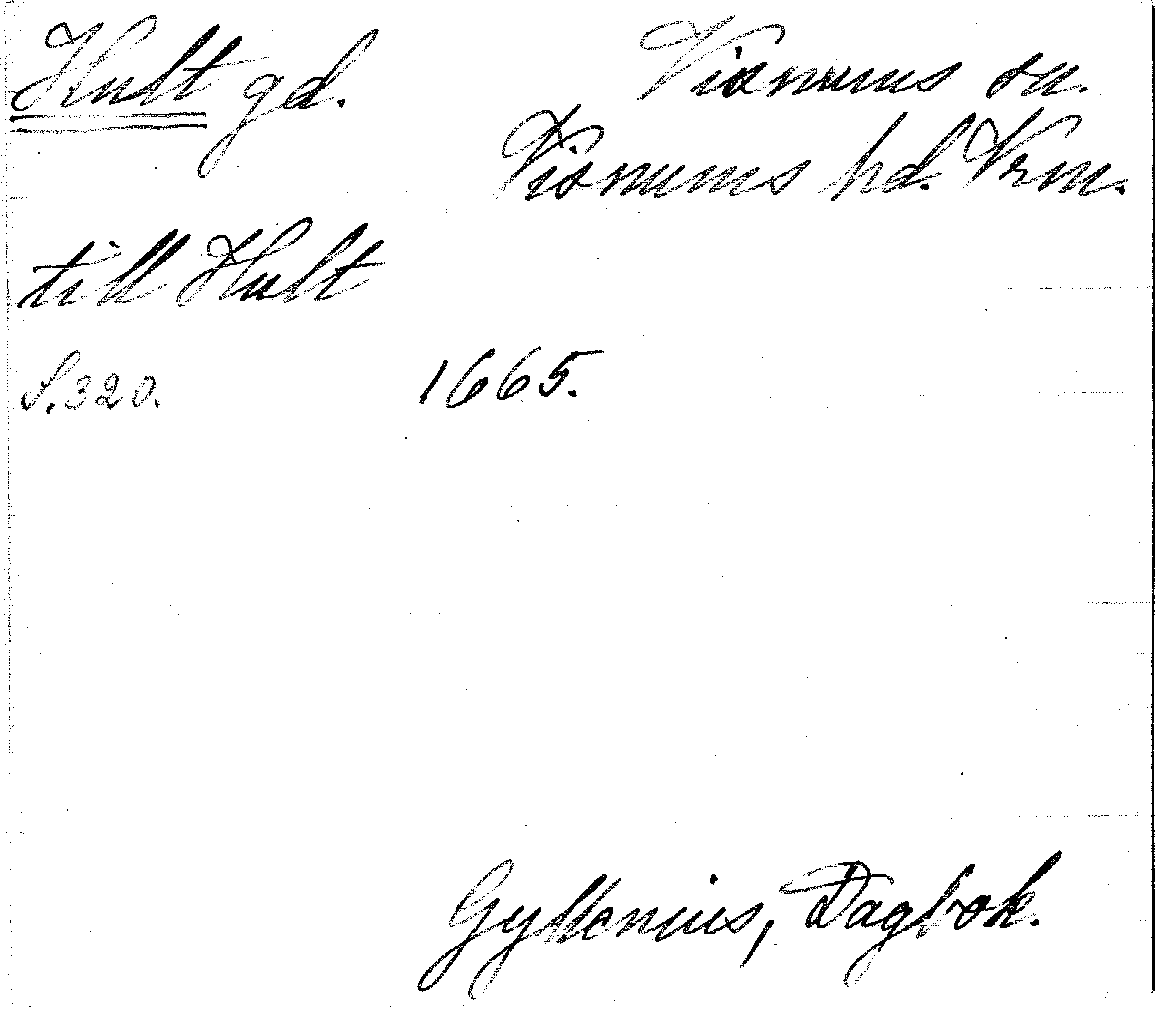 Hult gd. Visnums sn.
Visnums hd. Vrm.
till Hult
S. 320. 1665.
Gyllenius, Dagbok.